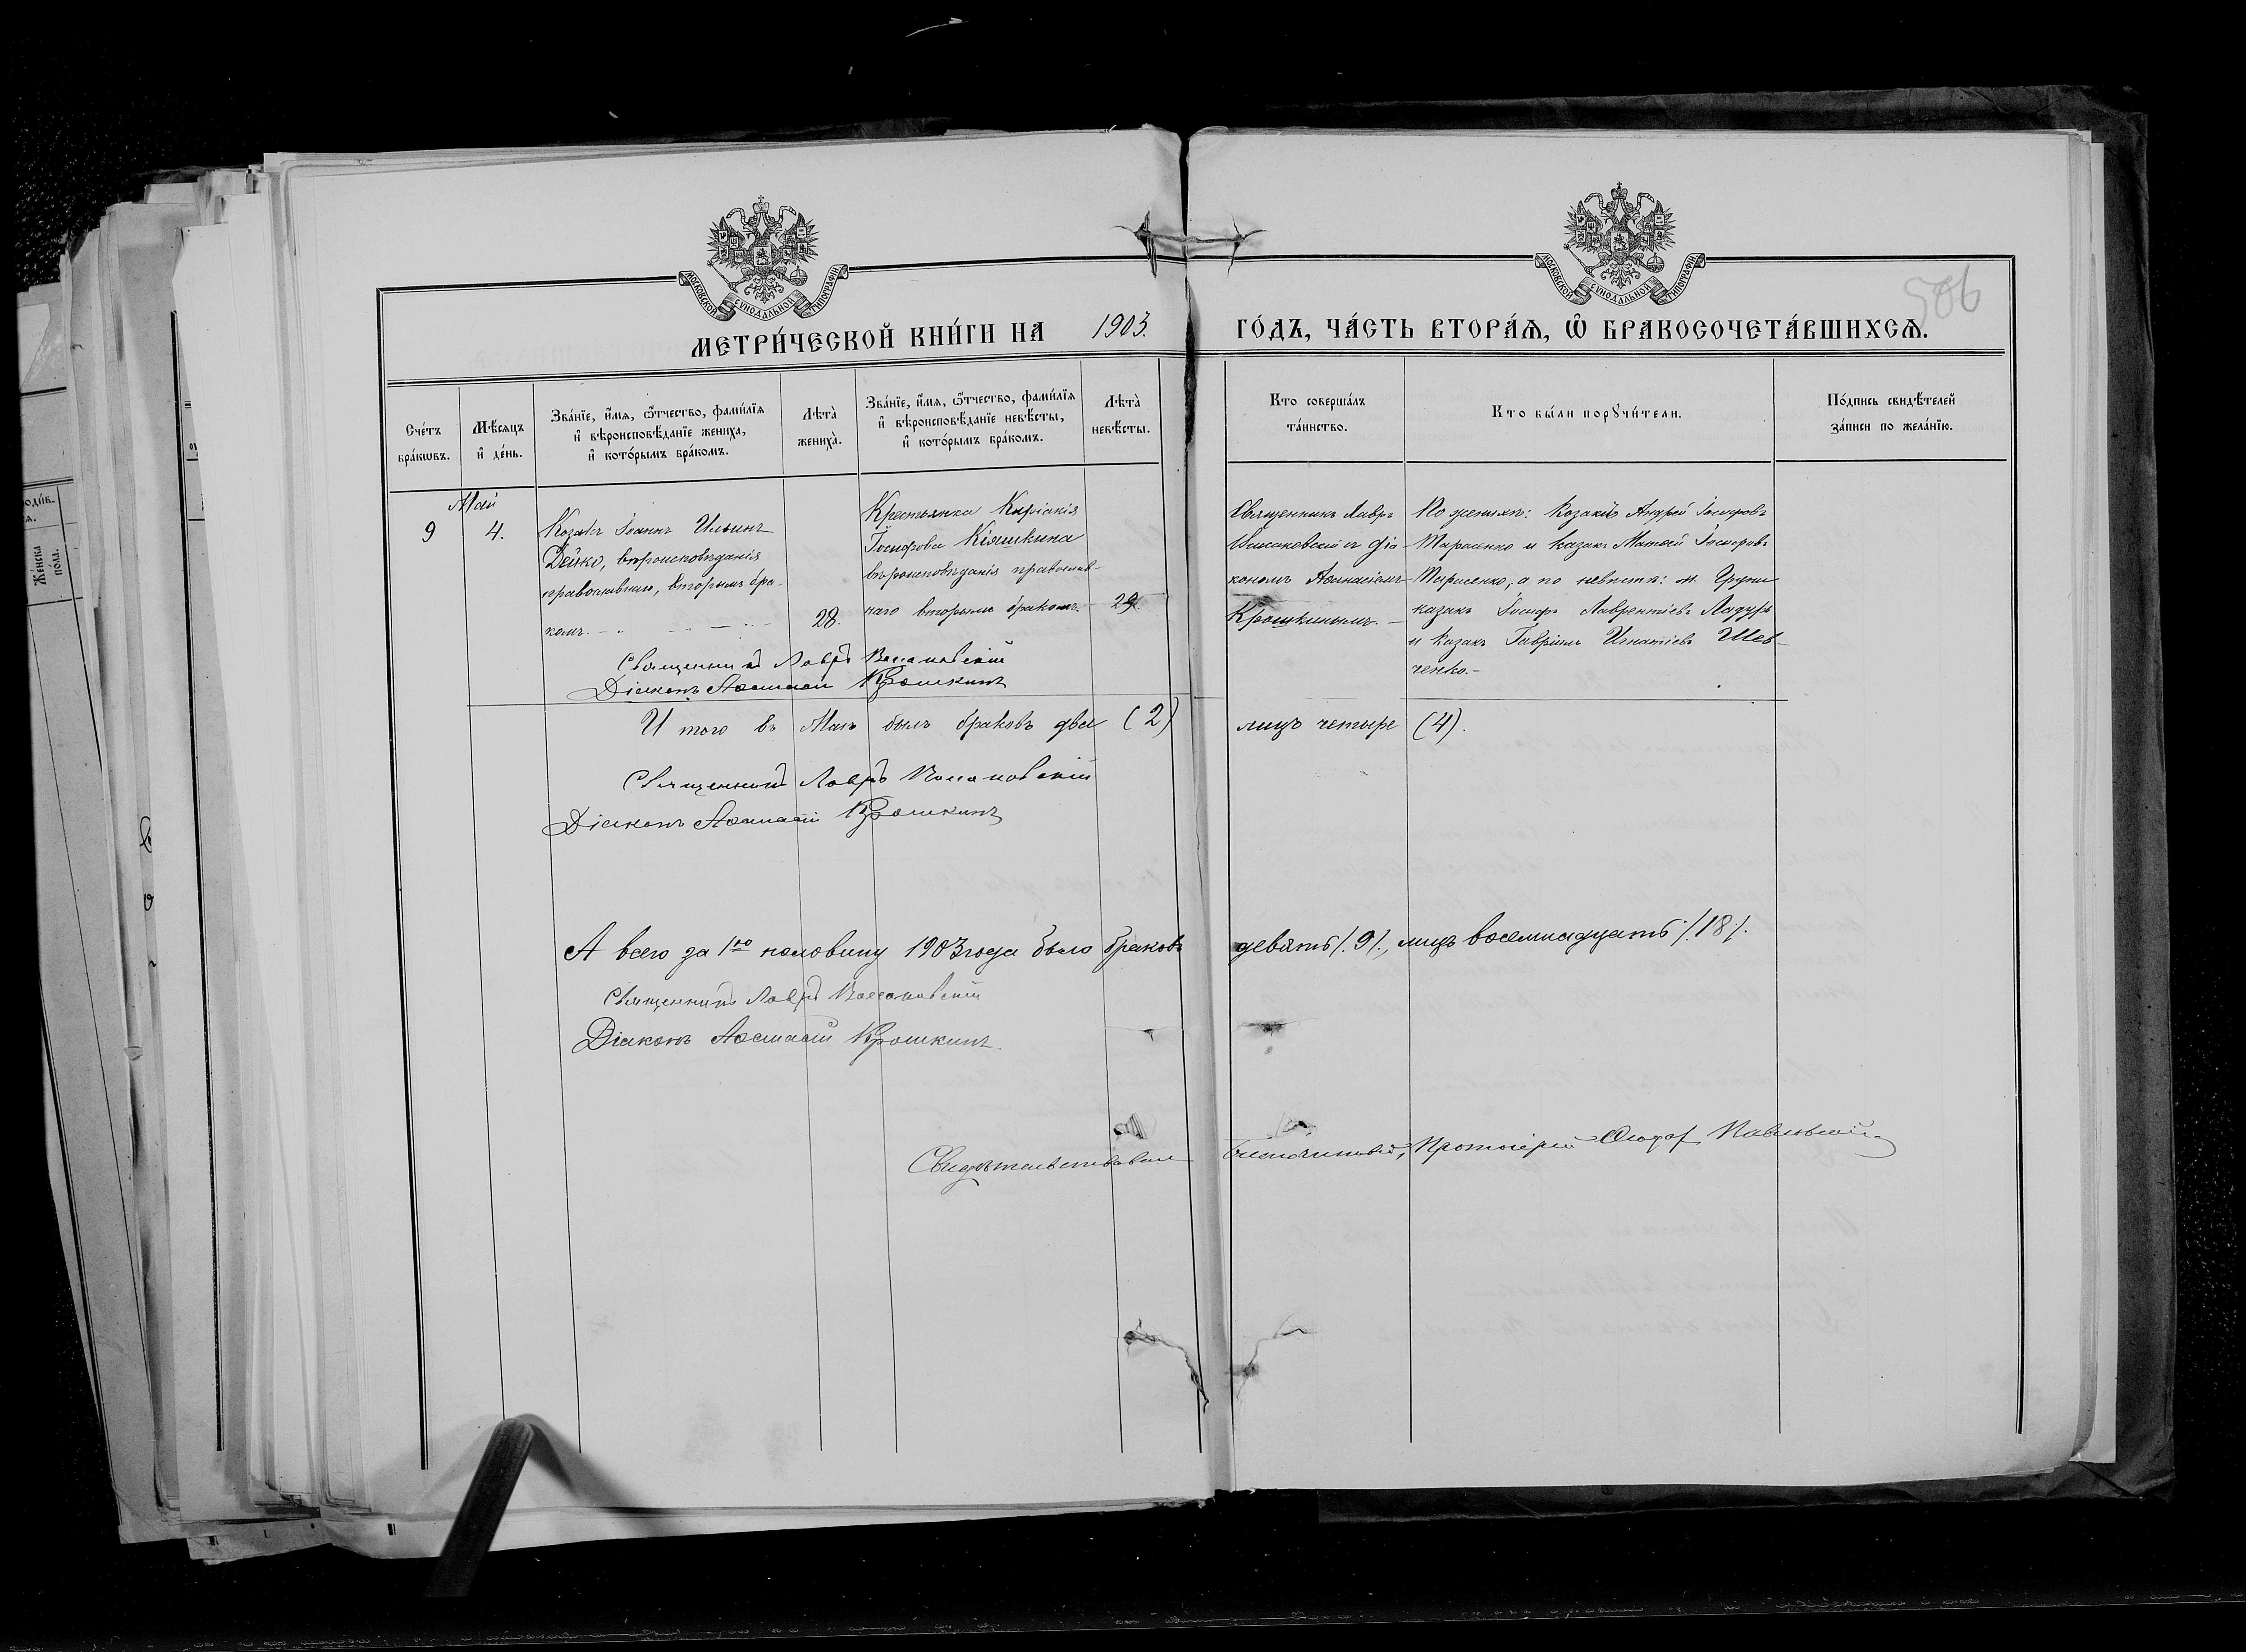 506
МОСКОВСКОЙ СѴНОДАЛЬНОЙ ТИПОГРАФІИ
МОСКОВСКОЙ СѴНОДАЛЬНОЙ ТИПОГРАФІИ
МЕТРИ́ЧЕСКОЙ КНИ́ГИ НА 1903. ГО́ДЪ, ЧА́СТЬ ВТОРА́Ѧ, Ѿ БРАКОСОЧЕТА́ВШИХСѦ.
Сче́тъ
бра́кѡвъ.
Мѣ́сяцъ
и҆ де́нь.
Зва́нїе, и҆́мѧ, ѻ҆́тчество, фами́лїѧ
и҆ вѣроисповѣ́данїе жениха̀,
и҆ кото́рымъ бра́комъ.
Лѣта̀
жениха̀.
Зва́нїе, и҆́мѧ, ѻ҆́тчество, фами́лїѧ
и҆ вѣроисповѣ́данїе невѣ́сты,
и҆ кото́рымъ бра́комъ.
Лѣта̀
невѣ́сты.
Кто соверша́лъ
та́инство.
Кто бы́ли порꙋчи́тели.
По́дпись свидѣ́телей
за́писи по жела́нїю.
Май
9
4.
Козакъ Іоаннъ Ильинъ
Дейко, вѣроисповѣданія
православнаго, вторымъ бра-
комъ.
28.
Крестьянка Киріакія
Іосифова Кіяшкина
вѣроисповѣданія православ-
наго вторымъ бракомъ.
29
Священникъ Лавръ
с діа-
кономъ Аѳанасіемъ
Крошкинымъ.
По женихѣ: Козакъ Андрей Іосифовъ
Тарасенко и казакъ Матѳей Іосифовъ
Тарасенко, а по невѣстѣ: м. Груни
казакъ Іосифъ Лаврентіевъ Ладуръ
и казакъ Гавріилъ Игнатіевъ Шев-
ченко.
Священникъ Лавръ
Діаконъ Аѳанасій Крошкинъ
И того въ Маѣ былъ браковъ два (2) лицъ четыре (4).
Священникъ Лавръ
Діаконъ Аѳанасій Крошкинъ
А всего за 1ую половину 1903 года было браковъ девять /.9/., лицъ восемнадцать /.18/.
Священникъ Лавръ
Діаконъ Аѳанасій Крошкинъ.
Свидѣтельствовалъ Благочинный, Протоіерей Павловскій